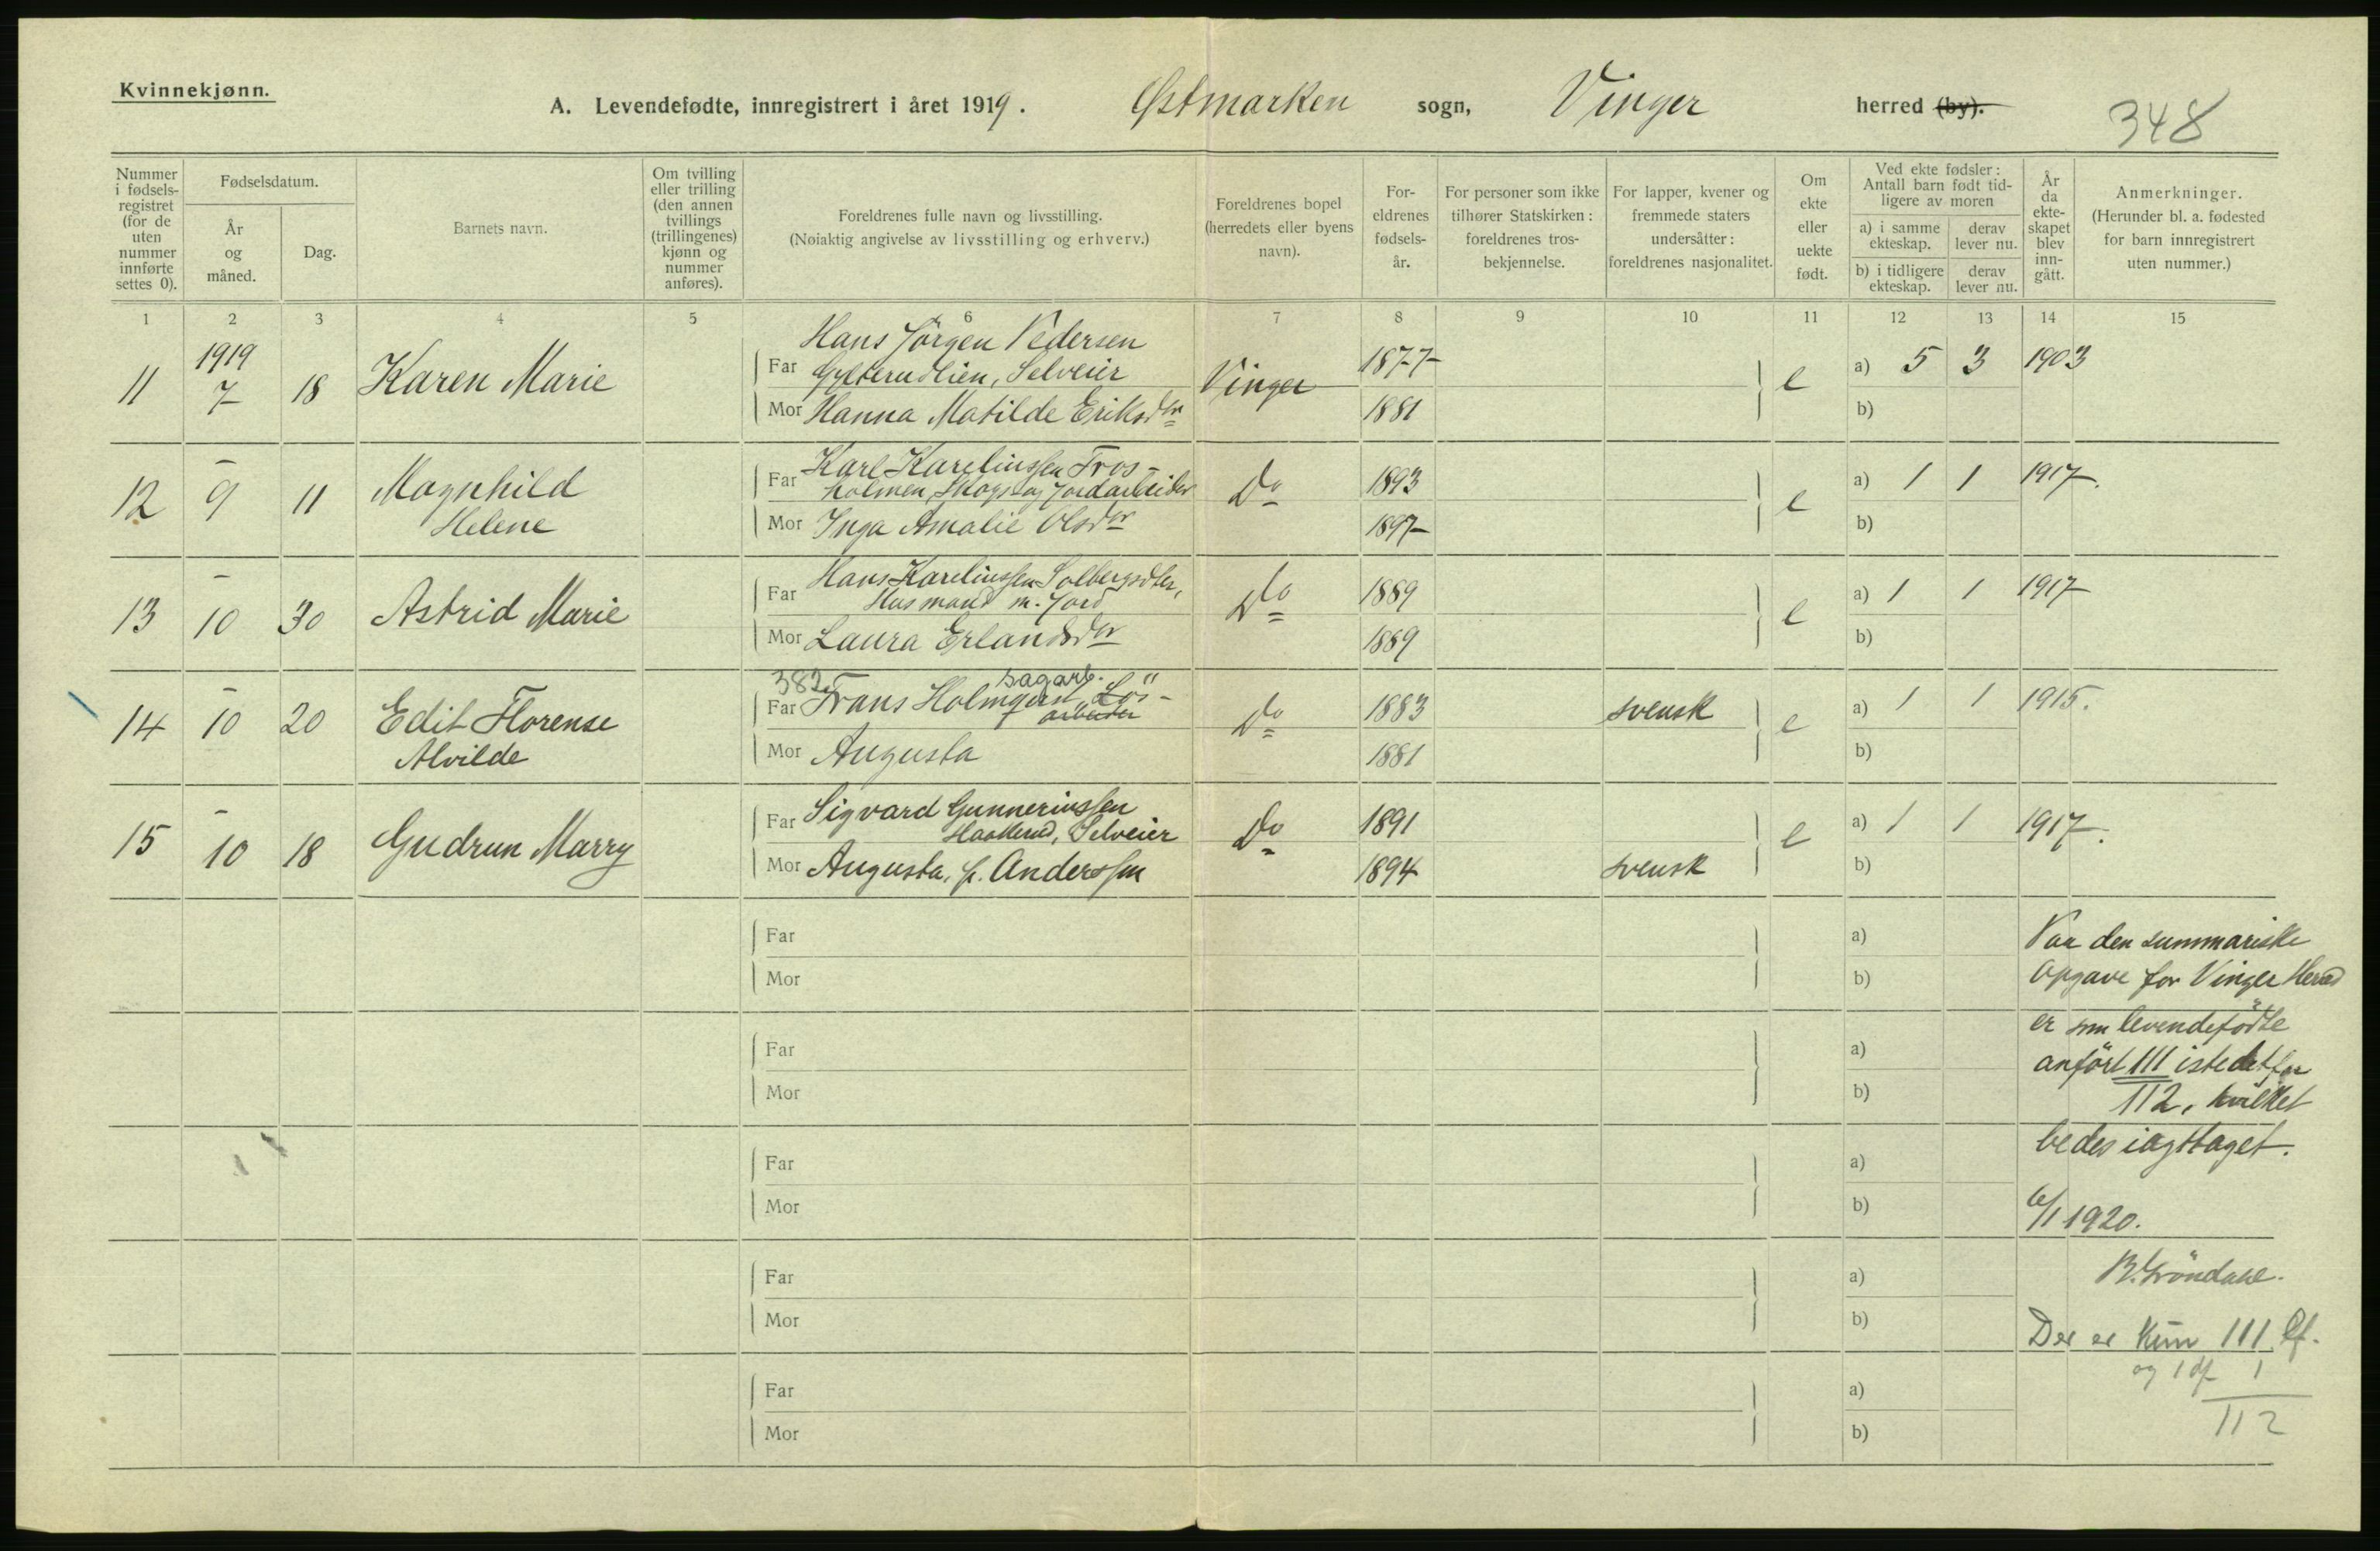 Kvinnekjønn.
A. Levendefødte, innregistrert i året 1919. Østmarken sogn, Vinger herred (by).
348
Nummer i fødsels-registret (for de uten nummer innførte settes 0).
Fødselsdatum.
År og måned.
Dag.
Barnets navn.
Om tvilling eller trilling (den annen tvillings (trillingenes) kjønn og nummer anføres).
Foreldrenes fulle navn og livsstilling.
(Nøiaktig angivelse av livsstilling og erhverv.)
Foreldrenes bopel (herredets eller byens navn).
For-eldrenes fødsels-år.
For personer som ikke tilhører Statskirken: foreldrenes tros-bekjennelse.
For lapper, kvener og fremmede staters undersåtter: foreldrenes nasjonalitet.
Om ekte eller uekte født.
Ved ekte fødsler: Antall barn født tid-ligere av moren
a) i samme ekteskap.
derav lever nu.
b) i tidligere ekteskap.
derav lever nu.
År da ekte-skapet blev inn-gått.
Anmerkninger.
(Herunder bl. a. fødested for barn innregistrert uten nummer.)
1 2 3 4 5 6 7 8 9 10 11 12 13 14 15
Hans Jörgen Pedersen
11 1919 7 18 Karen Marie Far Gylterudlien, Selveier Vinger 1877 e a) 5 3 1903
Mor Hanna Matilde Eriksdtr 1881 b)
Karl Karelinssen Fros-
12 – 9 11 Magnhild Far holmen, Skogs og Jordarbeider Do 1893 e a) 1 1 1917.
Helene Mor Inga Amalie Olsdtr 1897 b)
Hans Karelinssen Solbergsdter,
13 – 10 30 Astrid Marie Far Husmand m. Jord Do 1889 e a) 1 1 1917
Mor Laura Erlandsdtr 1889 b)
382 sagarb.
14 – 10 20 Edit Florense Far Frans Holmgren, Lös-arbeider Do 1883 svensk e a) 1 1 1915.
Alvilde Mor Augusta 1881 b)
Sigvard Gunneriussen
15 – 10 18 Gudrun Marry Far Haakerud, Selveier Do 1891 e a) 1 1 1917.
Mor Augusta, f. Anderssen 1894 svensk b)
Far a)
Mor b)
Far a)
Mor b)
Far a)
Mor b)
Far a)
Mor b)
Far a)
Mor b)
Paa den summariske
Opgave for Vinger Herred
er som levendefödte
anfört 111 istedetfor
112, hvilket
bedes iagttaget.
6/1 1920.
B. Gröndahl.
Der er kun 111 lf.
og 1 df 1
112